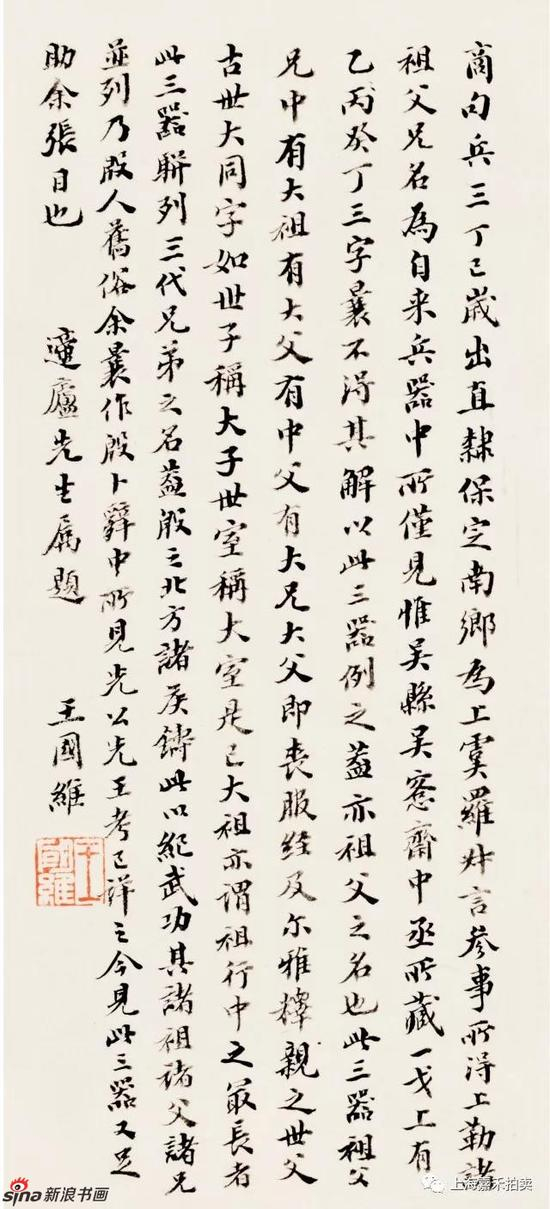 商句兵三丁巳歲出直隸保定南鄉為上虞羅叔言參事所得上勒諸
祖父兄名為自来兵器中所僅見惟吴縣吴愙齋中丞所藏一戈上有
乙丙癸丁三字曩不得其解以此三器例之葢亦祖父之名也此三器祖父
兄中有大祖有大父有中父有大兄大父即喪服經及尔雅釋親之世父
古世大同字如世子稱大子世室稱大室是已大祖亦謂祖行中之最長者
此三器駢列三代兄弟之名葢殷之北方諸矦鑄此以紀武功其諸祖諸父諸兄
並列乃殷人舊俗余曩作殷卜辭中所見先公先王考已詳之今見此三器又足
助余張目也
蘧廬先生属題
王國維
王國維
sina新浪书画
上海嘉禾拍卖